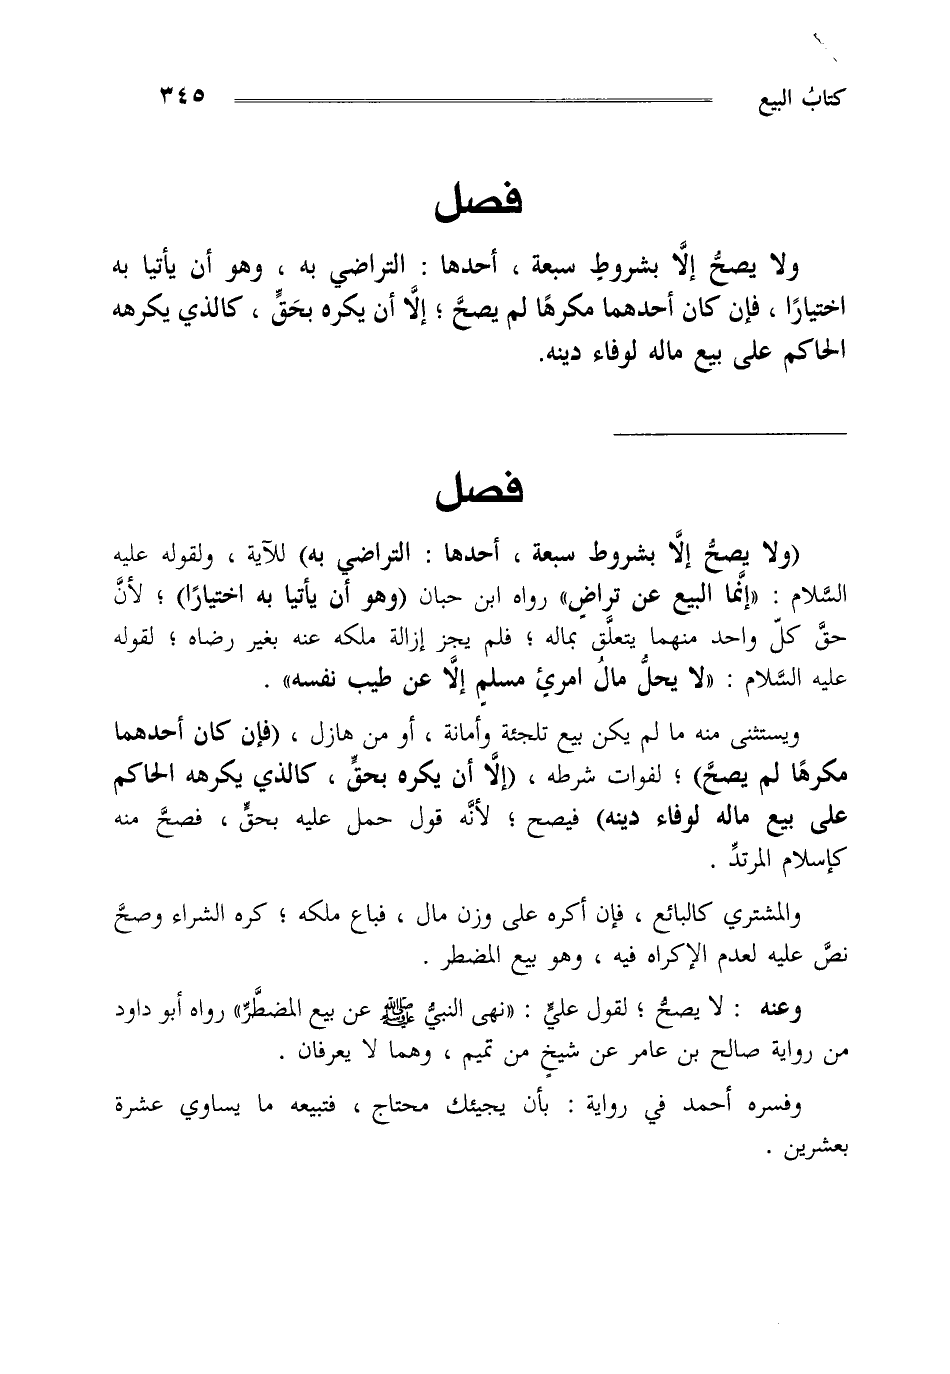 كتابُ البيع ٣٤٥
فصل
ولا يصحُّ إلَّا بشروطٍ سبعة ، أحدها : التراضي به ، وهو أن يأتيا به
اختيارًا ، فإن كان أحدهما مكرهًا لم يصحَّ ؛ إلَّا أن يكره بحَقٍّ ، كالذي يكرهه
الحاكم على بيع ماله لوفاء دينه.
فصل
(ولا يصحُّ إلَّا بشروط سبعة ، أحدها : التراضي به) للآية ، ولقوله عليه
السَّلام : «إنَّما البيع عن تراضٍ» رواه ابن حبان (وهو أن يأتيا به اختيارًا) ؛ لأنَّ
حقَّ كلّ واحد منهما يتعلَّق بماله ؛ فلم يجز إزالة ملكه عنه بغير رضاه ؛ لقوله
عليه السَّلام : «لا يحلُّ مالُ امرئ مسلمٍ إلَّا عن طيب نفسه» .
ويستثنى منه ما لم يكن بيع تلجئة وأمانة ، أو من هازل ، (فإن كان أحدهما
مكرهًا لم يصحَّ) ؛ لفوات شرطه ، (إلَّا أن يكره بحقٍّ ، كالذي يكرهه الحاكم
على بيع ماله لوفاء دينه) فيصح ؛ لأنَّه قول حمل عليه بحقٍّ ، فصحَّ منه
كإسلام المرتدِّ .
والمشتري كالبائع ، فإن أكره على وزن مال ، فباع ملكه ؛ كره الشراء وصحَّ
نصَّ عليه لعدم الإكراه فيه ، وهو بيع المضطر .
وعنه : لا يصحُّ ؛ لقول عليٍّ : «نهى النبيُّ ﷺ عن بيع المضطَّرِّ» رواه أبو داود
من رواية صالح بن عامر عن شيخٍ من تميم ، وهما لا يعرفان .
وفسره أحمد في رواية : بأن يجيئك محتاج ، فتبيعه ما يساوي عشرة
بعشرين .